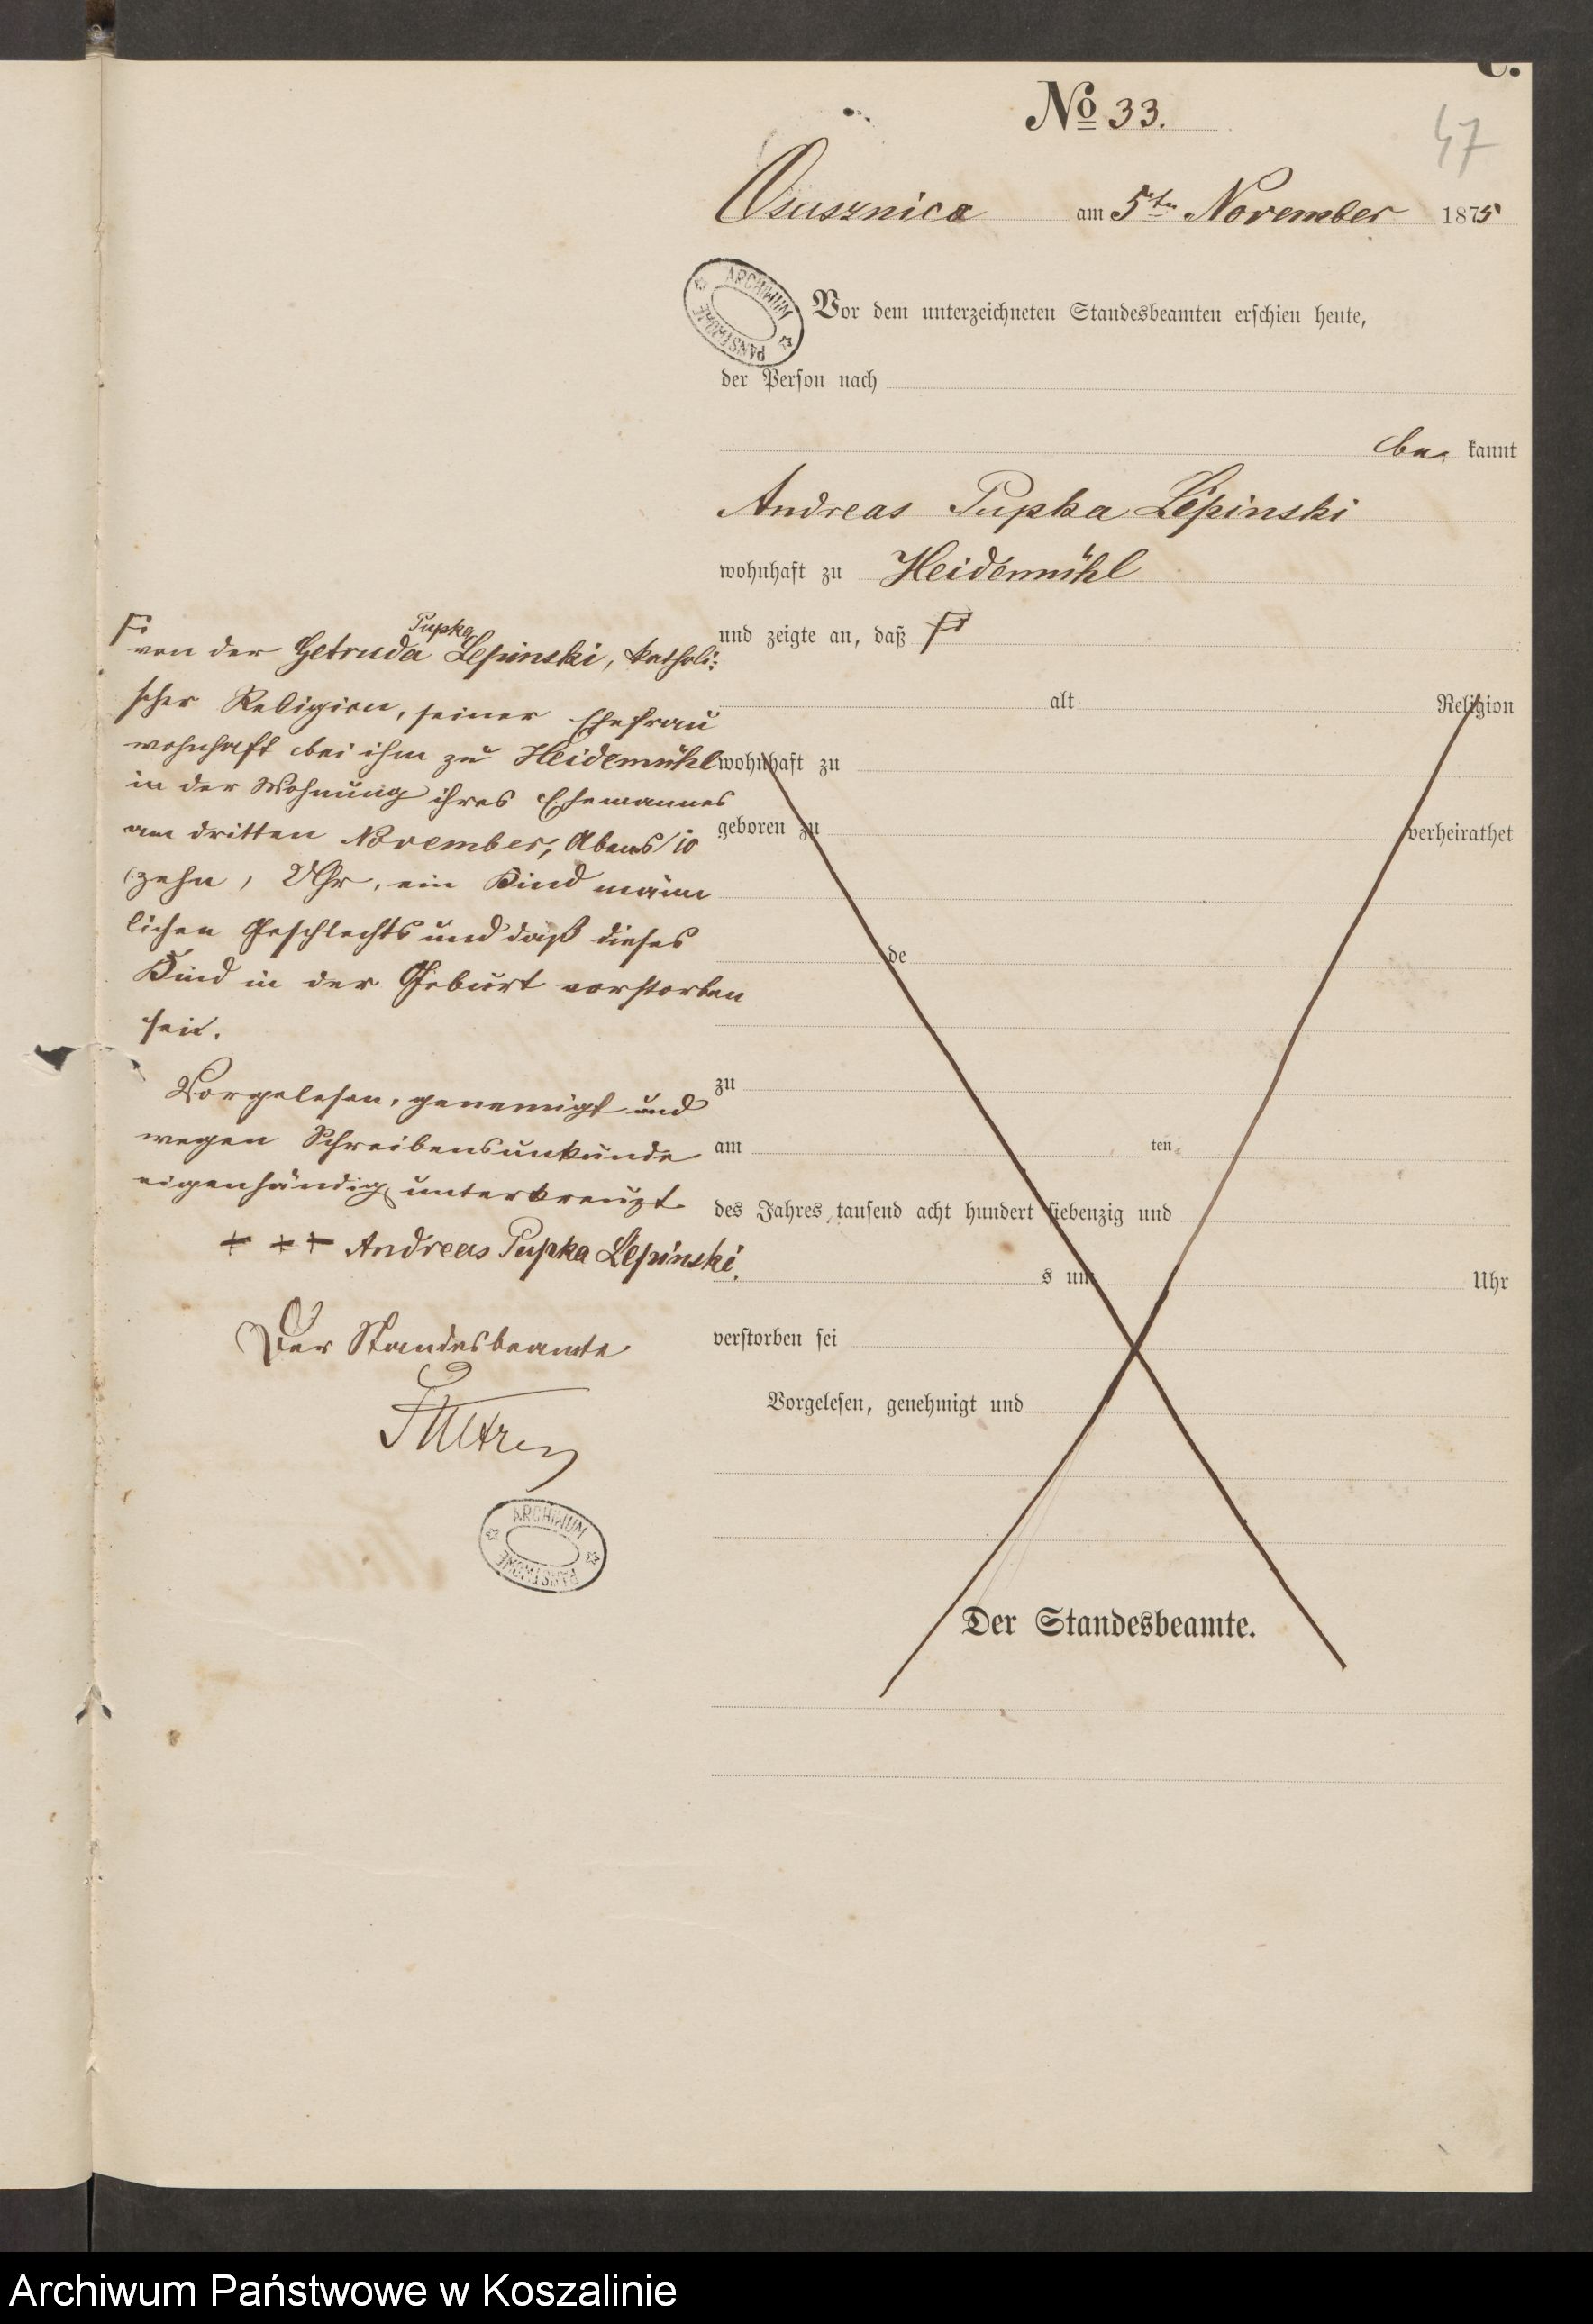 C.
No 33.
47
Osusznica am 5ten November 1875
ARCHIWUM PAŃSTWOWE
Vor dem unterzeichneten Standesbeamten erschien heute,
der Person nach
be kannt
Andreas Pupka Lepinski
wohnhaft zu Heidemühl
und zeigte an, daß
alt Religion
wohnhaft zu
geboren zu verheirathet
de
zu
am ten
des Jahres tausend acht hundert siebenzig und
s um Uhr
verstorben sei
Vorgelesen, genehmigt und
Der Standesbeamte.
Pupka
von der Getruda Lepinski, katholi-
scher Religion, seiner Ehefrau
wohnhaft bei ihm zu Heidemühl
in der Wohnung ihres Ehemannes
am dritten November, Abens 10
(zehn) Uhr, ein Kind männ
lichen Geschlechts und daß dieses
Kind in der Geburt verstorben
sei.
Vorgelesen, genemigt und
wegen Schreibensunkunde
eigenhändig unterkreuzt
+ + + Andreas Pupka Lepinski.
Der Standesbeamte
ARCHIWUM PAŃSTWOWE
Archiwum Państwowe w Koszalinie